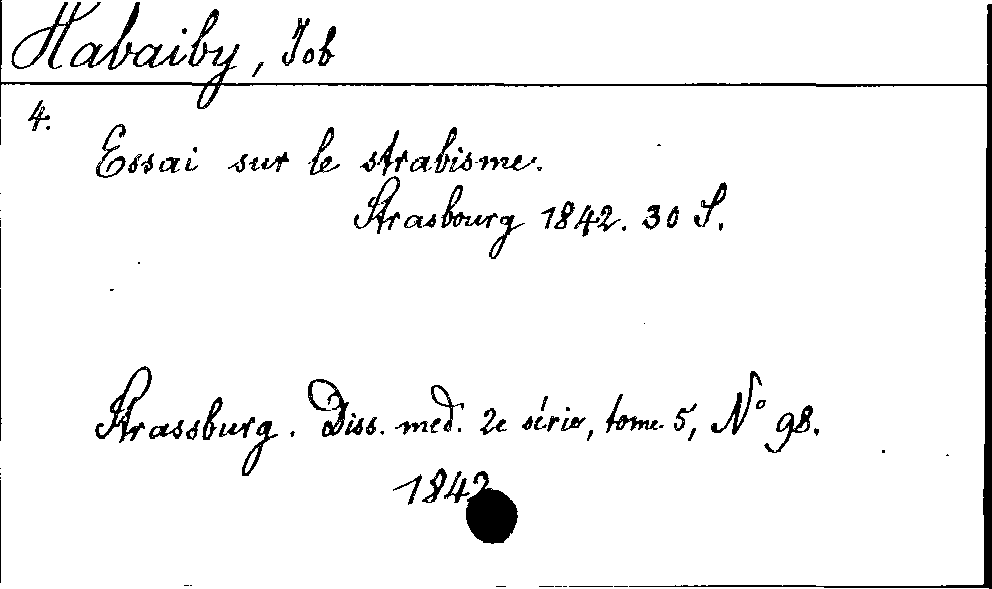 Habaiby, Job
4.
Essai sur le strabisme.
Strasbourg 1842. 30 S.
Strassburg. Diss. med. 2e série, tome 5, N° 98.
1842